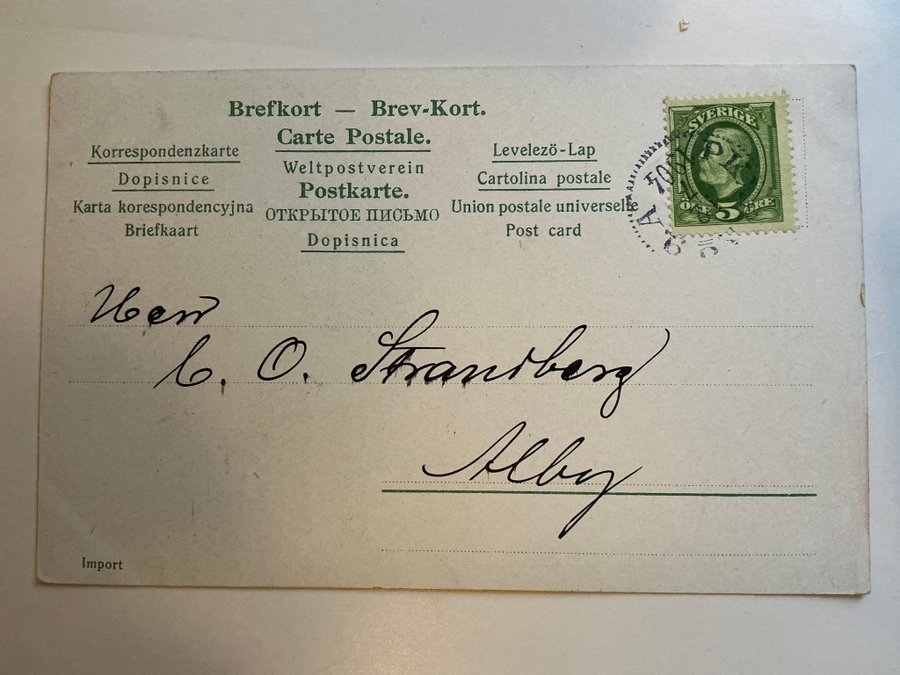 Brefkort — Brev-Kort.
Carte Postale.
Korrespondenzkarte
Weltpostverein
Levelezö-Lap
Dopisnice
Postkarte.
Cartolina postale
Karta korespondencyjna
ОТКРЫТОЕ ПИСЬМО
Union postale universelle
Briefkaart
Dopisnica
Post card
SVERIGE
ÖRE 5 ÖRE
PK
A
Herr
C. O. Strandberg
Alby
Import